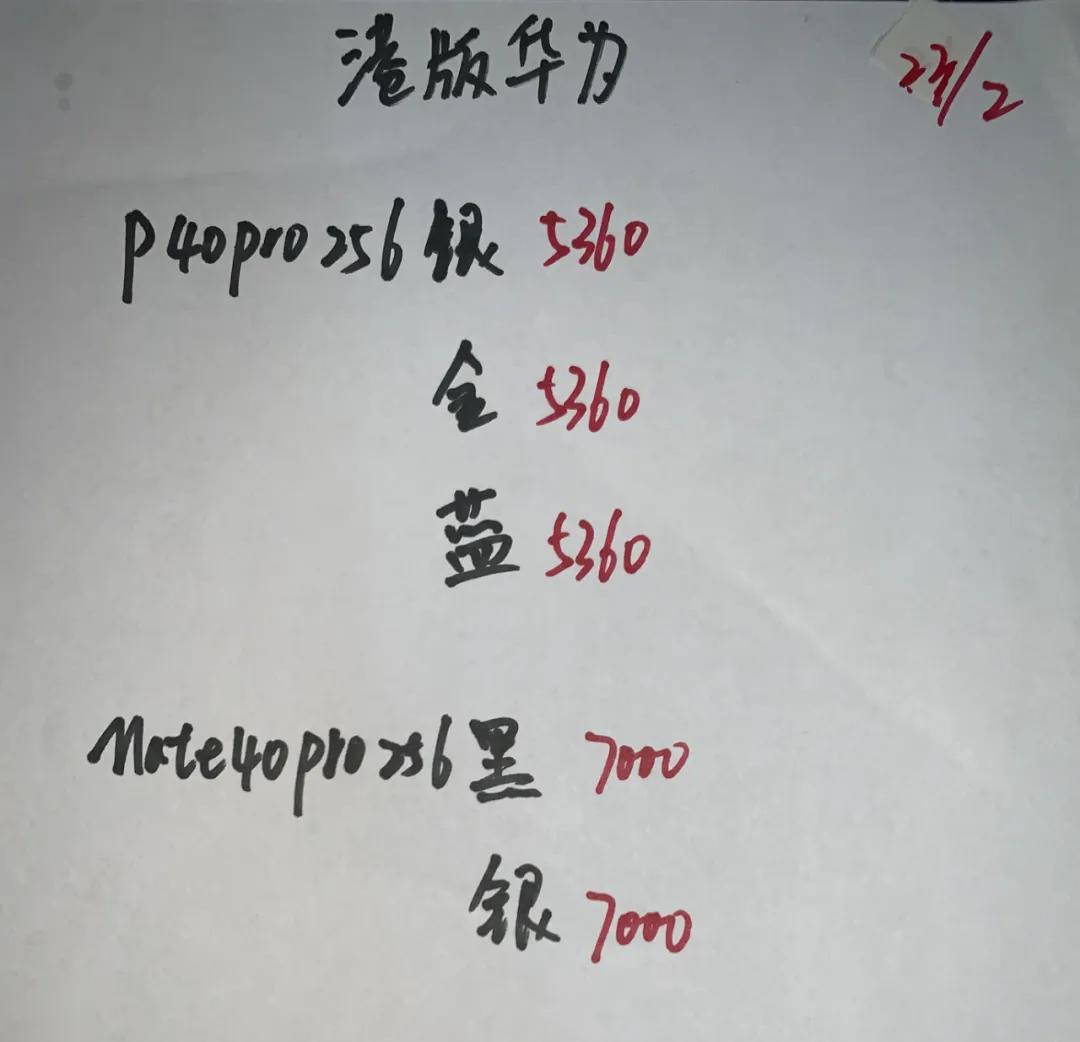 港版华为
23/2
P40pro256银 5360
金 5360
蓝 5360
Mate40pro256黑 7000
银 7000